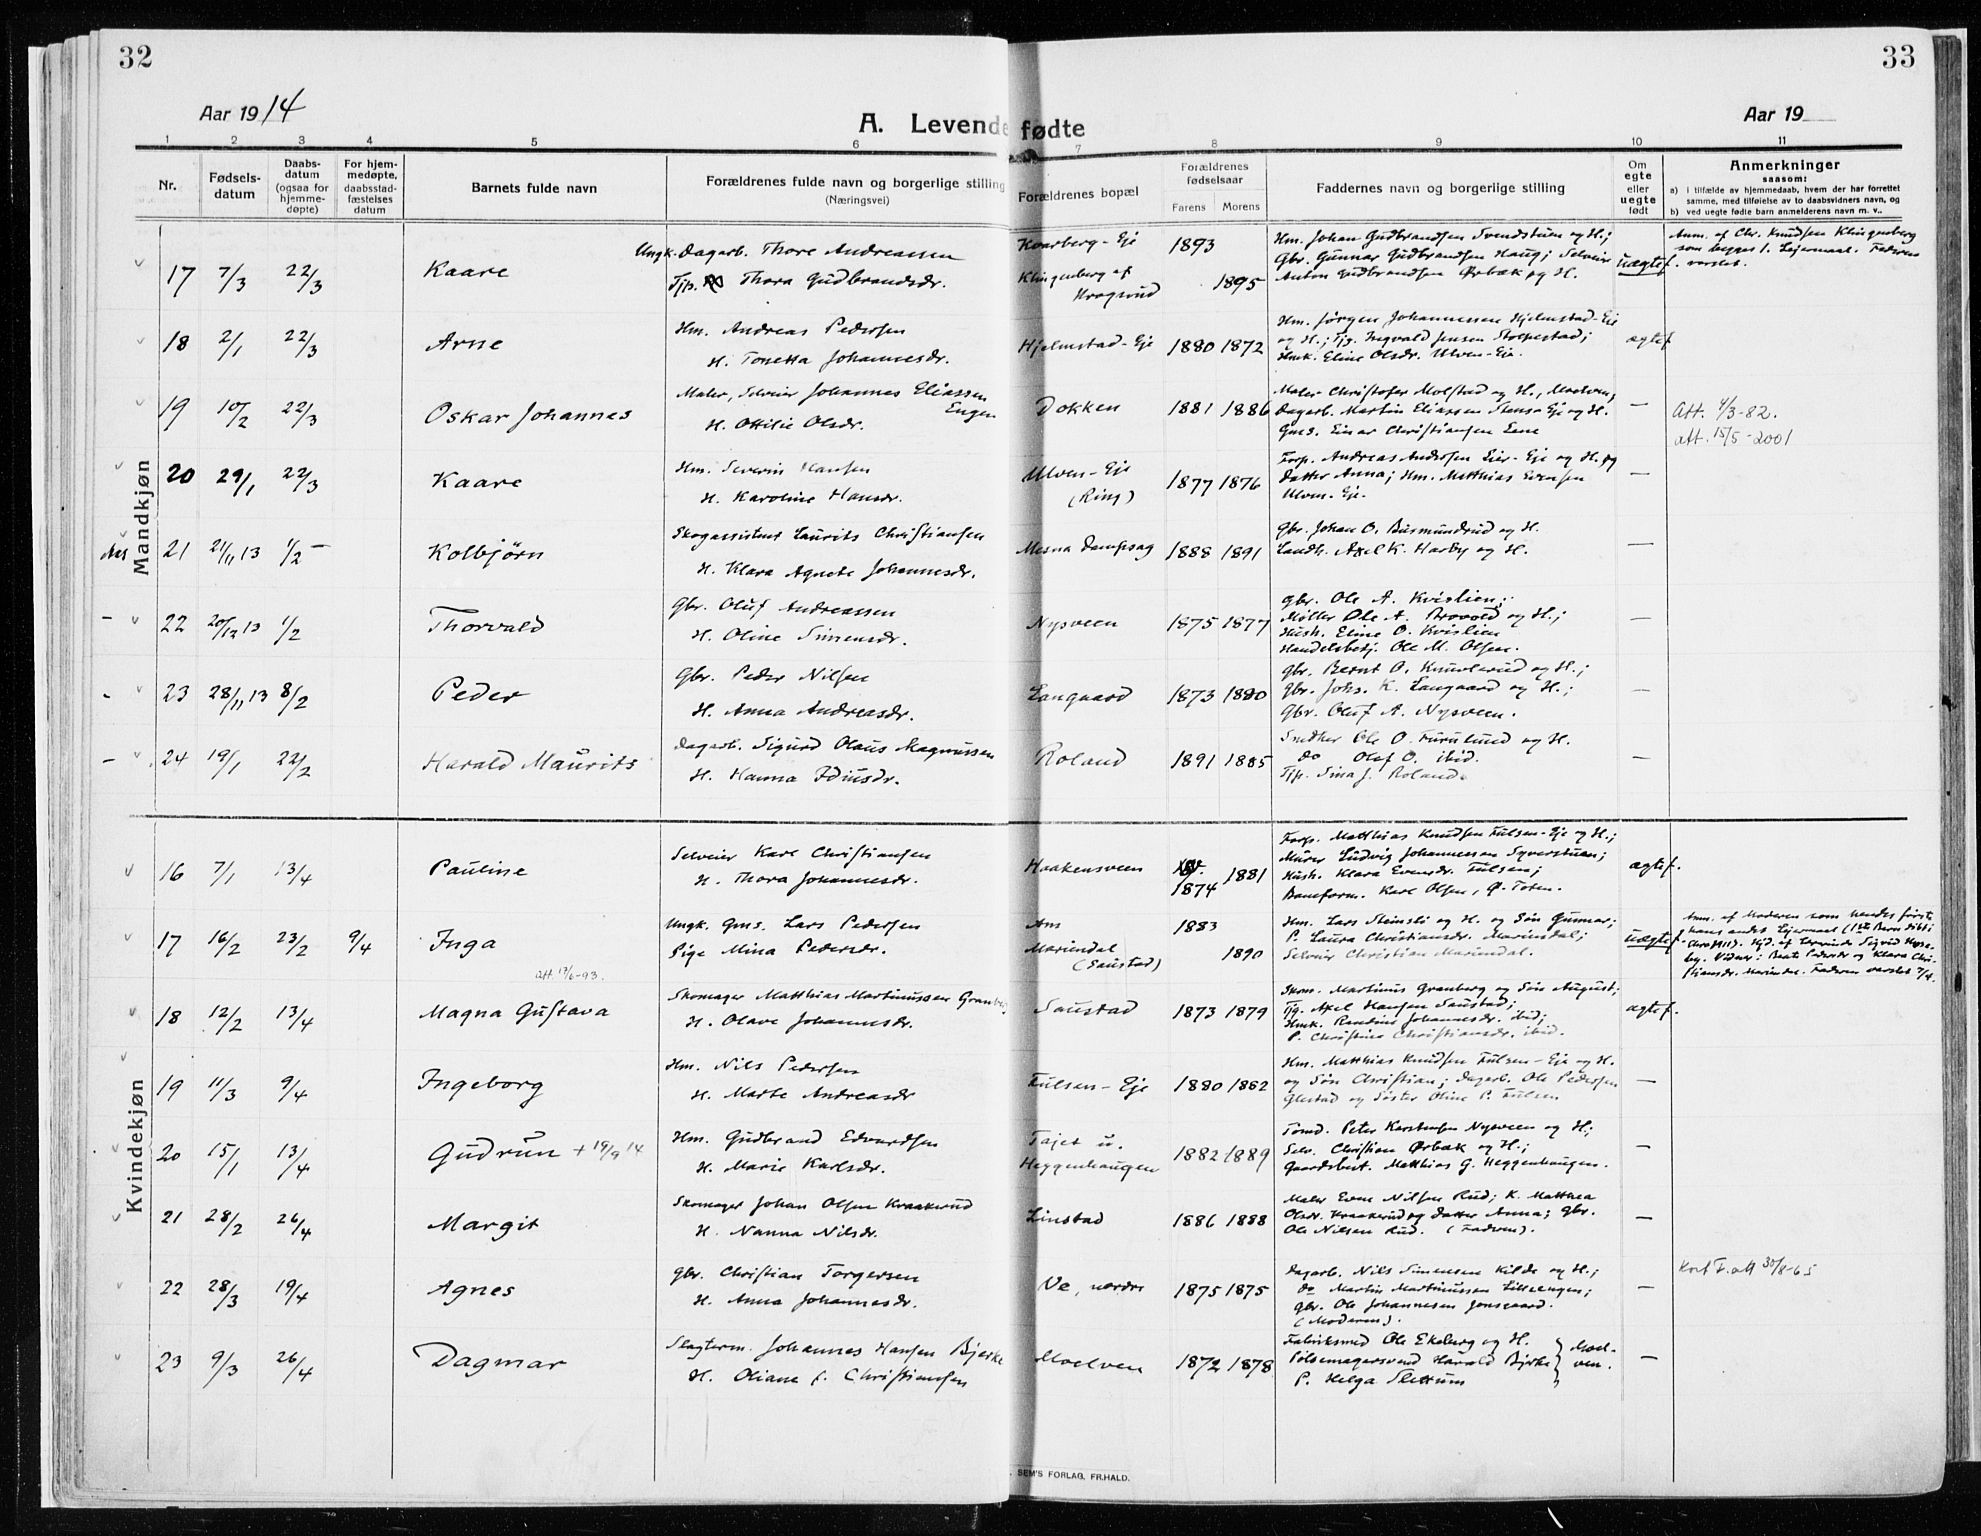 32
33
Aar 1914
A. Levendefødte
Aar 19
1 2 3 4 5 6 7 8 9 10 11
Nr.
Fødsels-
datum
Daabs-
datum
(ogsaa for
hjemme-
døpte)
For hjem-
medøpte,
daabsstad-
fæstelses
datum
Barnets fulde navn
Forældrenes fulde navn og borgerlige stilling
(Næringsvei)
Forældrenes bopæl
Forældrenes
fødselsaar
Farens Morens
Faddernes navn og borgerlige stilling
Om
egte
eller
uegte
født
Anmerkninger
saasom:
a) i tilfælde av hjemmedaab, hvem der har forrettet
samme, med tilføielse av to daabsvidners navn, og
b) ved uegte fødte barn anmelderens navn m. v..
Mandkjøn
17 7/3 22/3 Kaare
Ungk. Dagarb. Thore Andreassen
Tjp. Thora Gudbrandsdr.
Kvarberg-Eje
Klingenberg af
1893
1895
Hm. Johan Gudbrandsen Svendstuen og H.;
Gbr. Gunnar Gudbrandsen Haug; Selveier
Anton Gudbrandsen Ørbæk og H.
uægtef.
Anm. af Chr. Knudsen Klingenberg
som begges 1. Lejermaal. Faderen
varslet.
18 2/1 22/3 Arne
Hm. Andreas Pedersen
H. Tonetta Johannesdr.
Hjelmstad-Eje 1880 1872
Hm. Jørgen Johannessen Hjelmstad-Eje
og H.; Tjg. Ingvald Jensen Stolpestad;
Hmk. Eline Olsdr. Ulven-Eje.
ægtef.
19 10/2 22/3 Oskar Johannes
Maler, Selveier Johannes Eliassen
Engen
H. Ottilie Olsdr.
Dokken 1881 1886
Maler Christofer Molstad og H., Moelven;
Dagarb. Martin Eliassen Stensr. Eje og H.
Gms. Einar Christiansen Lene
—
Att. 4/3-82.
att. 15/5-2001
20 29/1 22/3 Kaare
Hm. Severin Hansen
H. Karoline Hansdr.
Ulven-Eje
(Ring)
1877 1876
Forp. Andreas Andersen Lier-Eje og H. og
Datter Anna; Hm. Matthias Evensen
Ulven-Eje.
—
21 21/11 13 1/2 Kolbjørn
Skogassistent Laurits Christiansen
H. Klara Agnete Johannesdr.
Mesna Dampsag 1888 1891
Gbr. Johan O. Busmundrud og H.
Landh. Axel K. Harby og H.
—
22 20/12 13 1/2 Thorvald
Gbr. Oluf Andreassen
H. Oline Simensdr.
Nysveen 1875 1877
Gbr. Ole A. Kvislien;
Møller Ole A. Brovold og H.;
Hush. Eline O. Kvislien
Handelsbetj. Ole M. Olsen.
—
23 28/11 13 8/2 Peder
Gbr. Peder Nilsen
H. Anna Andreasdr.
Langaard 1873 1880
Gbr. Bernt O. Knuvlerud og H.;
Gbr. Johs. K. Langaard og H.;
Gbr. Oluf A. Nysveen.
—
24 19/1 22/2 Harald Maurits
Dagarb. Sigurd Olaus Magnussen
H. Hanna Idiusdr.
Roland 1891 1885
Snedker Ole O. Furulund og H.
do Olaf O. ibid.
Tjp. Sina J. Roland.
—
Kvindekjøn
16 7/1 13/4 Pauline
Selveier Karl Christiansen
H. Thora Johannesdr.
Haakensveen
1874 1881
Forp. Matthias Knudsen Fulsen-Eje og H.;
Murer Ludvig Johannessen Syverstuen;
Hush. Klara Evensdr. Fulsen;
Baneform. Karl Olsen, Ø. Toten.
ægtef.
17 16/2 23/2 9/4 Inga
att. 17/6-93.
Ungk. Gms. Lars Pedersen
Pige Mina Pedersdr.
Mariendal
(Saustad)
1883
1890
Hm. Lars Steinslø og H. og Søn Gunnar;
P. Laura Christiansdr. Mariendal;
Selveier Christian Mariendal.
uægtef.
Anm. af Moderen som hendes første
hans andet Lejermaal
Vidner: Beate Pedersdr og Klara Chri-
stiansdr. Mariendal. Faderen varslet 7/4.
18 12/2 13/4 Magna Gustava
Skomager Matthias Martinussen Granberg
H. Olave Johannesdr.
Saustad 1873 1879
Skom. Martinus Granberg og Søn August;
Tjg. Axel Hansen Saustad;
Hmk. Randine Johannesdr. ibid;
P. Christine Christiansdr. ibid.
ægtef.
19 11/3 9/4 Ingeborg
Hm. Nils Pedersen
H. Marte Andreasdr
Fulsen-Eje 1880 1882
Hm. Matthias Knudsen Fulsen-Eje og H.
og Søn Christian; Dagarb. Ole Pedersen
Glestad og Søster Oline P. Fulsen
—
20 15/1 13/4 Gudrun + 19/9 14
Hm. Gudbrand Edvardsen
H. Marie Karlsdr.
Tajet u.
Heggenhaugen
1882 1889
Tomd. Peter Karstensen Nysveen og H.;
Selv. Christian Ørbæk og H.;
Gaardsbest. Matthias G. Heggenhaugen.
—
21 28/2 26/4 Margit
Skomager Johan Olsen Kraakerud
H. Nanna Nilsdr.
Linstad 1886 1888
Maler Even Nilsen Rud; K. Matthea
Olsdr. Kraakerud og Datter Anna; Gbr.
Ole Nilsen Rud. (Faderen).
—
22 28/3 19/4 Agnes
Gbr. Christian Torgersen
H. Anna Johannesdr.
Ve, nordre 1875 1875
Dagarb. Nils Simensen Kilde og H.;
do Martin Martinussen Lilleengen;
Gbr. Ole Johannesen Jonsgaard.
(Moderen).
—
Kort F. att 30/8-65
23 9/3 26/4 Dagmar
Slagterm. Johannes Hansen Bjerke
H. Oliane C. Christiansen
Moelven 1872 1878
Fabriksmed Ole Ekeberg og H.
Pølsemagersvend Harald Bjerke
P. Helga Slettum
Moel-
ven.
—
SEM'S FORLAG, FR.HALD.